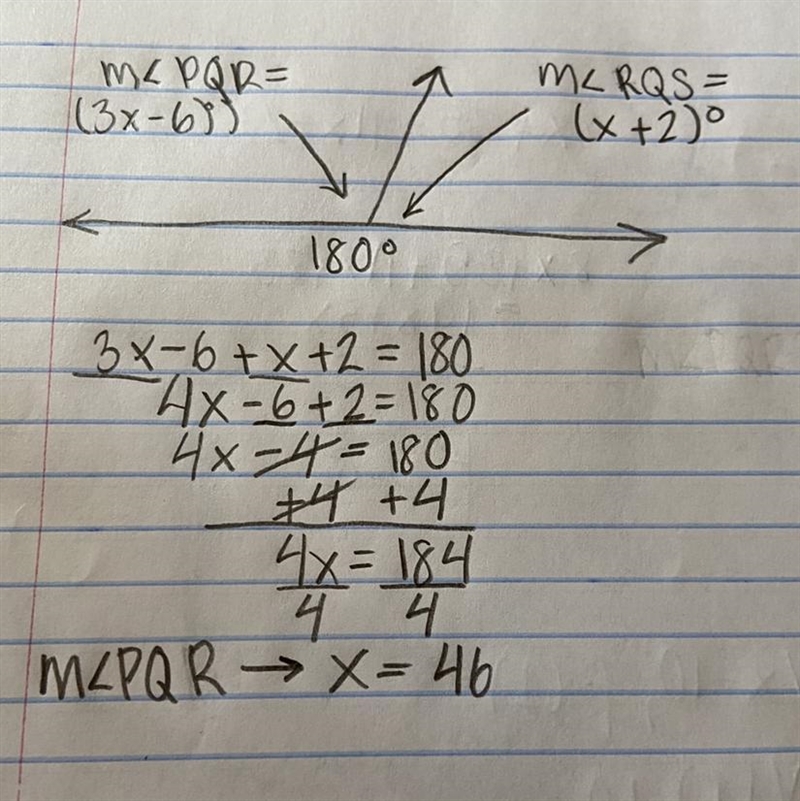 m< PQR =
(3x-6)°)
m< RQS =
(x+2)°
180°
3x-6+x+2=180
4x-6+2=180
4x-4=180
+4 +4
4x=184
4 4
m<PQR → x=46